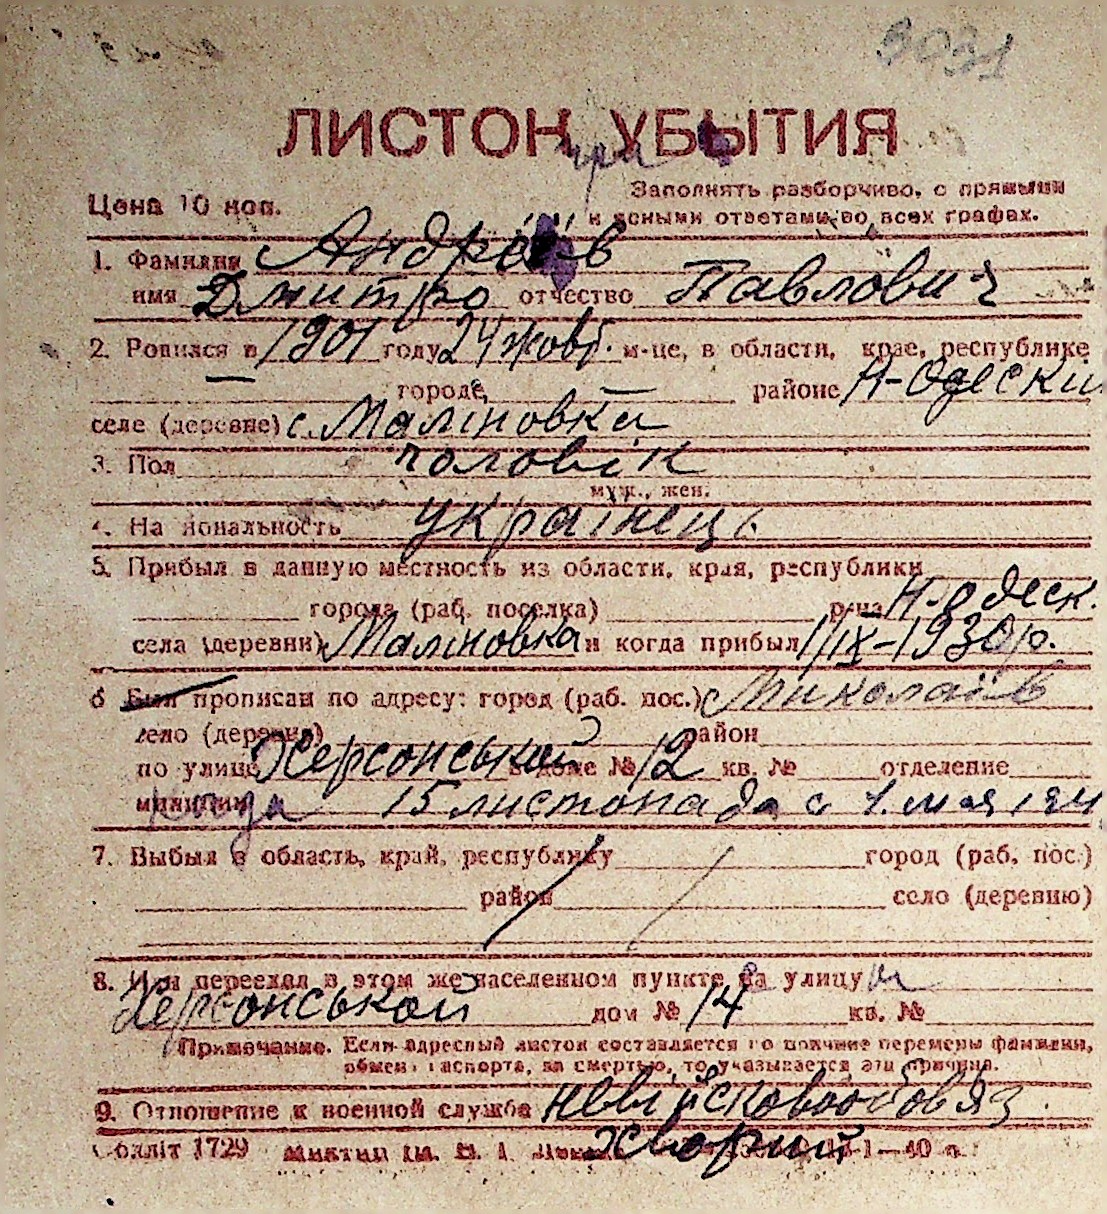 ЛИСТОК УБЫТИЯ
Цена 10 коп.
Заполнять разборчиво, с прямыми
и ясными ответами во всех графах.
1. Фамилия Андреев
имя Дмитро отчество Павлович
2. Родился в 1901 году 24 жовт. м-це, в области, крае, республике
— городе районе Н-Одески
селе (деревне) с. Маліновка
3. Пол чоловік
муж., жен.
4. Национальность українець
5. Прибыл в данную местность из области, края, республики
города (раб. поселка) р-на Н-Одеск.
села (деревни) Маліновка и когда прибыл 1/IX-1930 р.
6 Был прописан по адресу: город (раб. пос.) Миколаїв
село (деревня) район
по улице Херсонськой в доме № 12 кв. № отделение
милиции 15 листопада с 1. мая 194
7. Выбыл в область, край, республику город (раб. пос.)
район село (деревню)
8. Или переехал в этом же населенном пункте на улицу
Херсонськой дом № 14 кв. №
Примечание. Если адресный листок составляется по причине перемены фамилии,
обмен паспорта, за смертью, то указывается эта причина.
9. Отношение к военной службе невійсковообов'яз.
Облліт 1729 хворий 1—40 р.